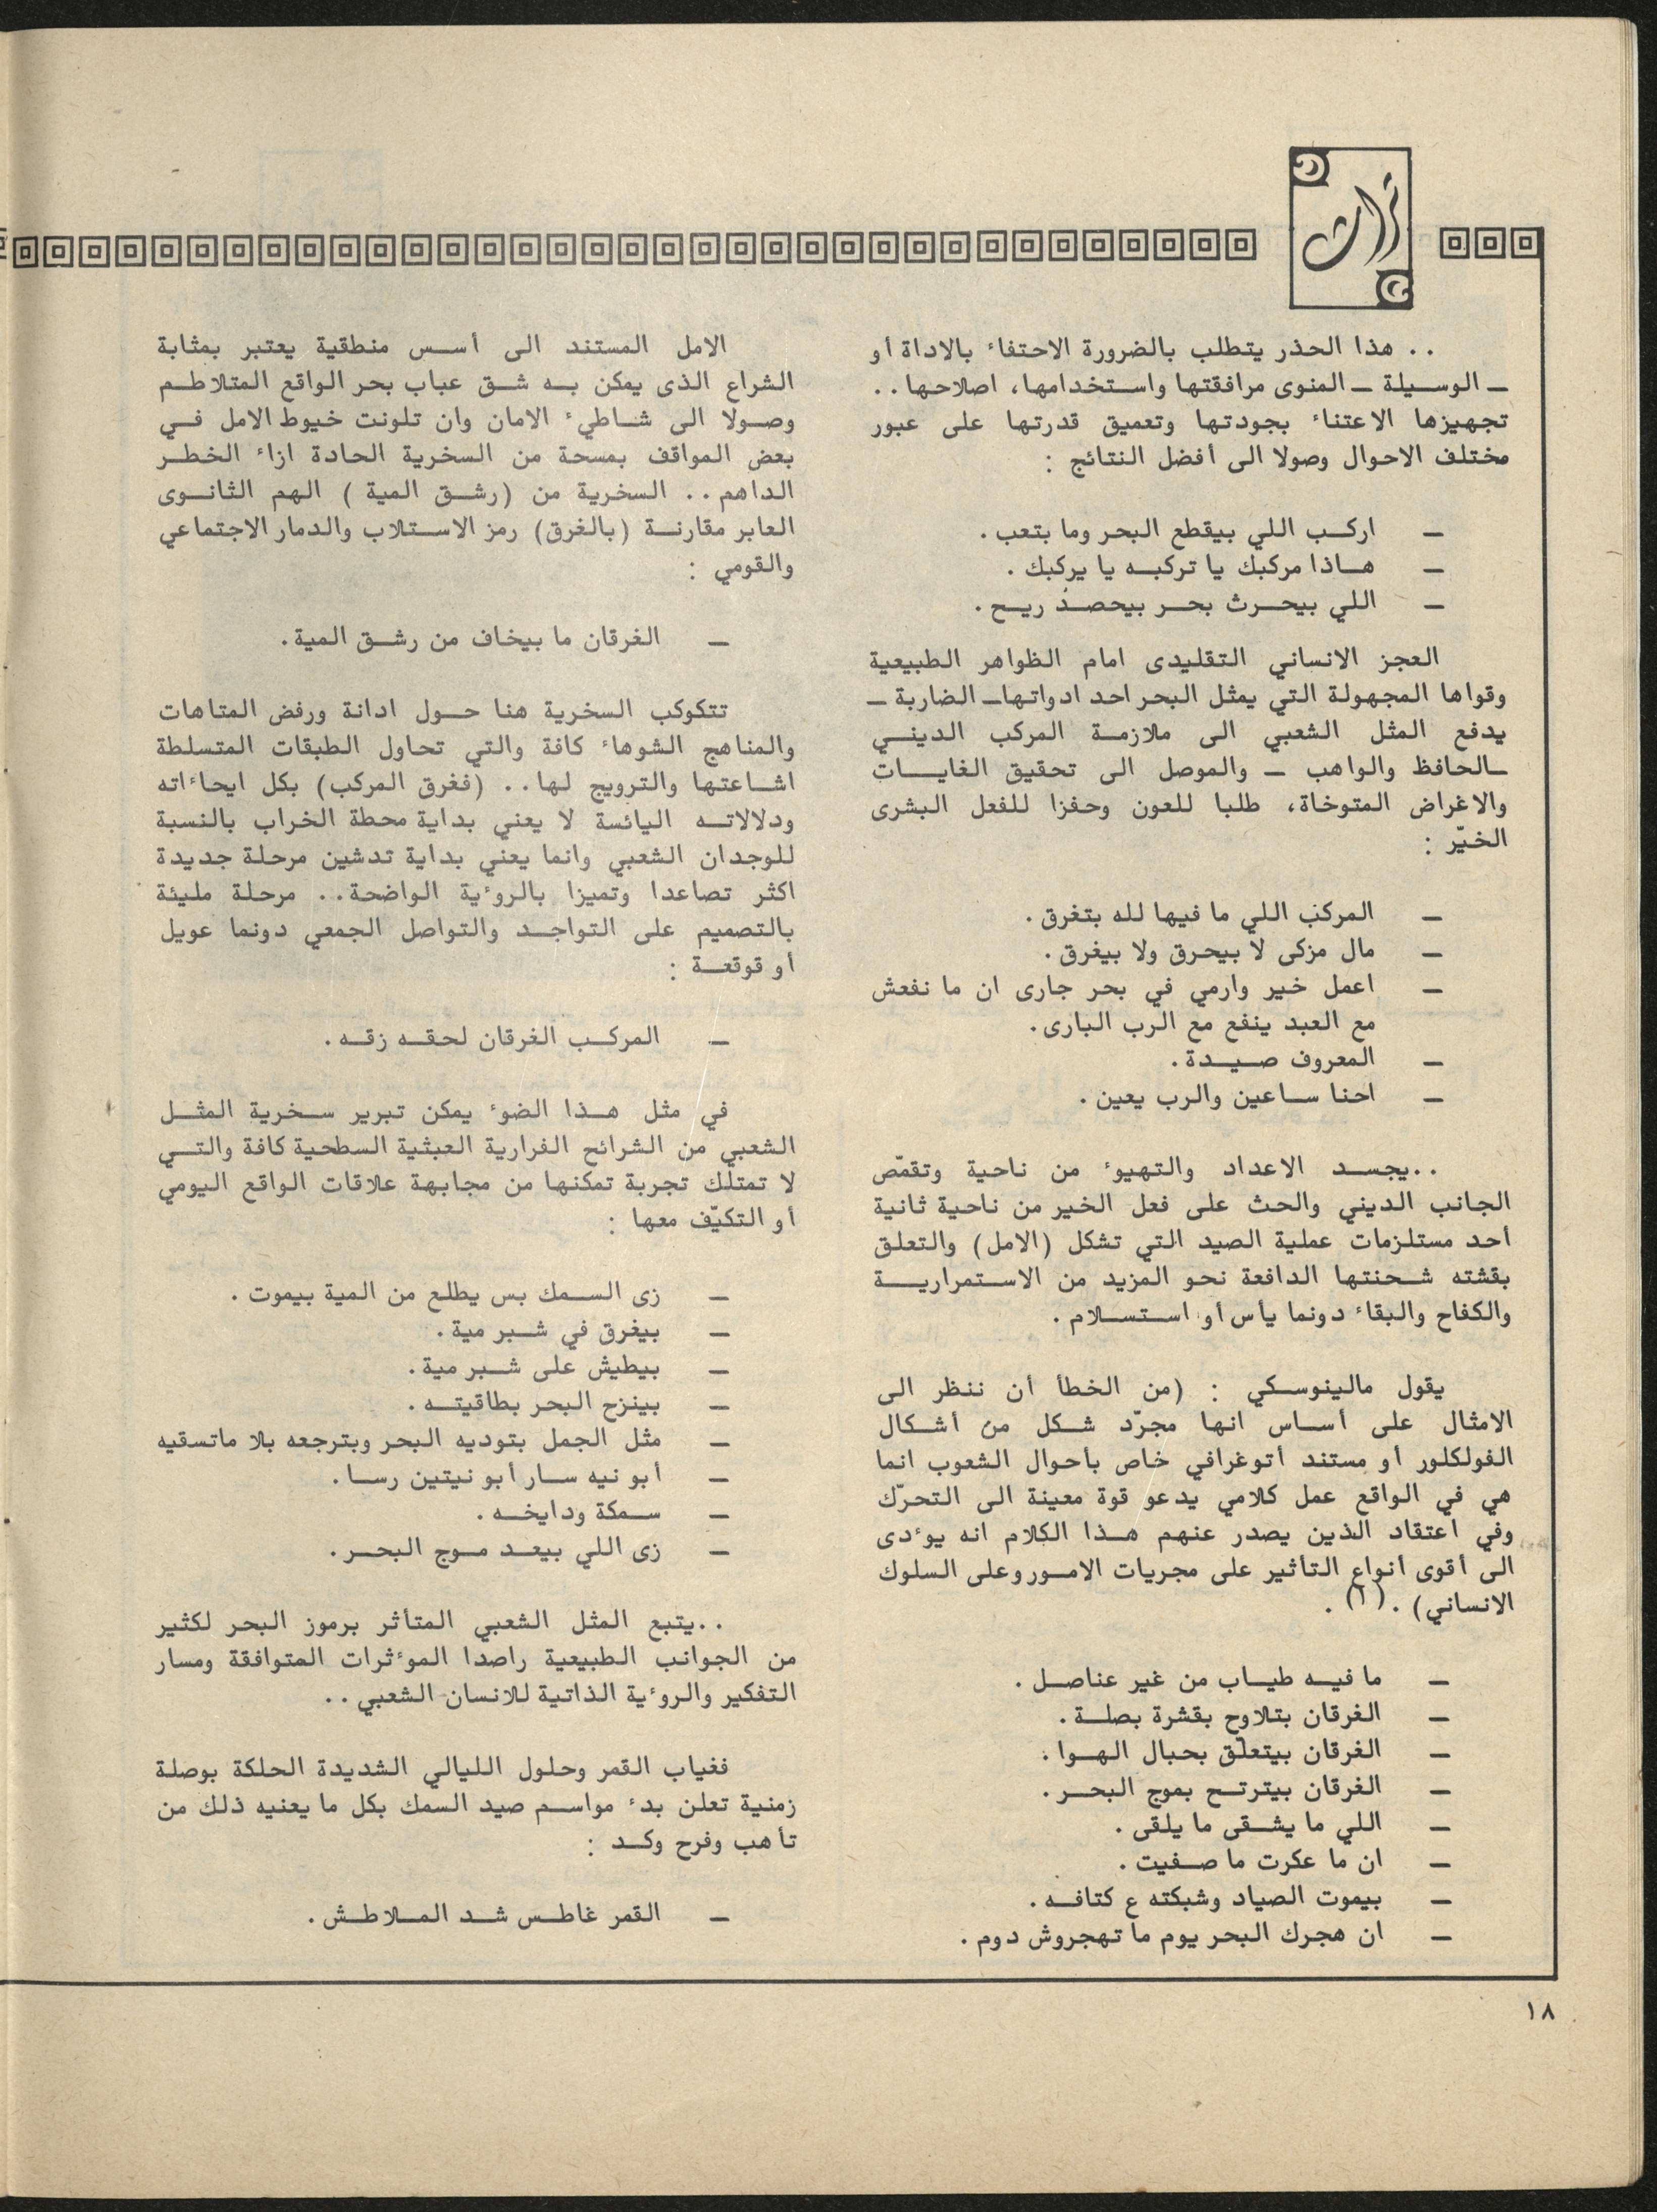 تراث
.. هذا الحذر يتطلب بالضرورة الاحتفاء بالاداة أو
ـ الوسيلة ـ المنوى مرافقتها واستخدامها، اصلاحها..
تجهيزها الاعتناء بجودتها وتعميق قدرتها على عبور
مختلف الاحوال وصولا الى أفضل النتائج :
ـ اركب اللي بيقطع البحر وما بتعب .
ـ هاذا مركبك يا تركبه يا يركبك .
ـ اللي بيحرث بحر بيحصد ريح .
العجز الانساني التقليدى امام الظواهر الطبيعية
وقواها المجهولة التي يمثل البحر احد ادواتها ـ الضاربة ـ
يدفع المثل الشعبي الى ملازمة المركب الديني
ـ الحافظ والواهب ـ والموصل الى تحقيق الغايات
والاغراض المتوخاة، طلبا للعون وحفزا للفعل البشرى
الخيّر :
ـ المركب اللي ما فيها لله بتغرق .
ـ مال مزكى لا بيحرق ولا بيغرق .
ـ اعمل خير وارمي في بحر جارى ان ما نفعش
مع العبد ينفع مع الرب البارى .
ـ المعروف صيدة .
ـ احنا ساعين والرب يعين .
.. يجسد الاعداد والتهيوء من ناحية وتقمّص
الجانب الديني والحث على فعل الخير من ناحية ثانية
أحد مستلزمات عملية الصيد التي تشكل (الامل) والتعلق
بقشته شحنتها الدافعة نحو المزيد من الاستمرارية
والكفاح والبقاء دونما يأس أو استسلام .
يقول مالينوسكي : (من الخطأ أن ننظر الى
الامثال على أساس انها مجرّد شكل من أشكال
الفولكلور أو مستند أتوغرافي خاص بأحوال الشعوب انما
هي في الواقع عمل كلامي يدعو قوة معينة الى التحرّك
وفي اعتقاد الذين يصدر عنهم هذا الكلام انه يوءدى
الى أقوى أنواع التأثير على مجريات الامور وعلى السلوك
الانساني) . (١) .
ـ ما فيه طياب من غير عناصل .
ـ الغرقان بتلاوح بقشرة بصلة .
ـ الغرقان بيتعلّق بحبال الهوا .
ـ الغرقان بيترتح بموج البحر .
ـ اللي ما يشقى ما يلقى .
ـ ان ما عكرت ما صفيت .
ـ بيموت الصياد وشبكته ع كتافه .
ـ ان هجرك البحر يوم ما تهجروش دوم .
الامل المستند الى أسس منطقية يعتبر بمثابة
الشراع الذى يمكن به شق عباب بحر الواقع المتلاطم
وصولا الى شاطيء الامان وان تلونت خيوط الامل في
بعض المواقف بمسحة من السخرية الحادة ازاء الخطر
الداهم .. السخرية من (رشق المية ) الهم الثانوى
العابر مقارنة (بالغرق) رمز الاستلاب والدمار الاجتماعي
والقومي :
ـ الغرقان ما بيخاف من رشق المية .
تتكوكب السخرية هنا حول ادانة ورفض المتاهات
والمناهج الشوهاء كافة والتي تحاول الطبقات المتسلطة
اشاعتها والترويج لها .. (فغرق المركب) بكل ايحاءاته
ودلالاته اليائسة لا يعني بداية محطة الخراب بالنسبة
للوجدان الشعبي وانما يعني بداية تدشين مرحلة جديدة
اكثر تصاعدا وتميزا بالروءية الواضحة .. مرحلة مليئة
بالتصميم على التواجد والتواصل الجمعي دونما عويل
أو قوقعة :
ـ المركب الغرقان لحقه زقه .
في مثل هذا الضوء يمكن تبرير سخرية المثل
الشعبي من الشرائح الفرارية العبثية السطحية كافة والتي
لا تمتلك تجربة تمكنها من مجابهة علاقات الواقع اليومي
أو التكيّف معها :
ـ زى السمك بس يطلع من المية بيموت .
ـ بيغرق في شبر مية .
ـ بيطيش على شبر مية .
ـ بينزح البحر بطاقيته .
ـ مثل الجمل بتوديه البحر وبترجعه بلا ماتسقيه
ـ أبو نيه سار أبو نيتين رسا .
ـ سمكة ودايخه .
ـ زى اللي بيعد موج البحر .
.. يتبع المثل الشعبي المتأثر برموز البحر لكثير
من الجوانب الطبيعية راصدا الموءثرات المتوافقة ومسار
التفكير والروءية الذاتية للانسان الشعبي ..
فغياب القمر وحلول الليالي الشديدة الحلكة بوصلة
زمنية تعلن بدء مواسم صيد السمك بكل ما يعنيه ذلك من
تأهب وفرح وكد :
ـ القمر غاطس شد الملاطش .
١٨